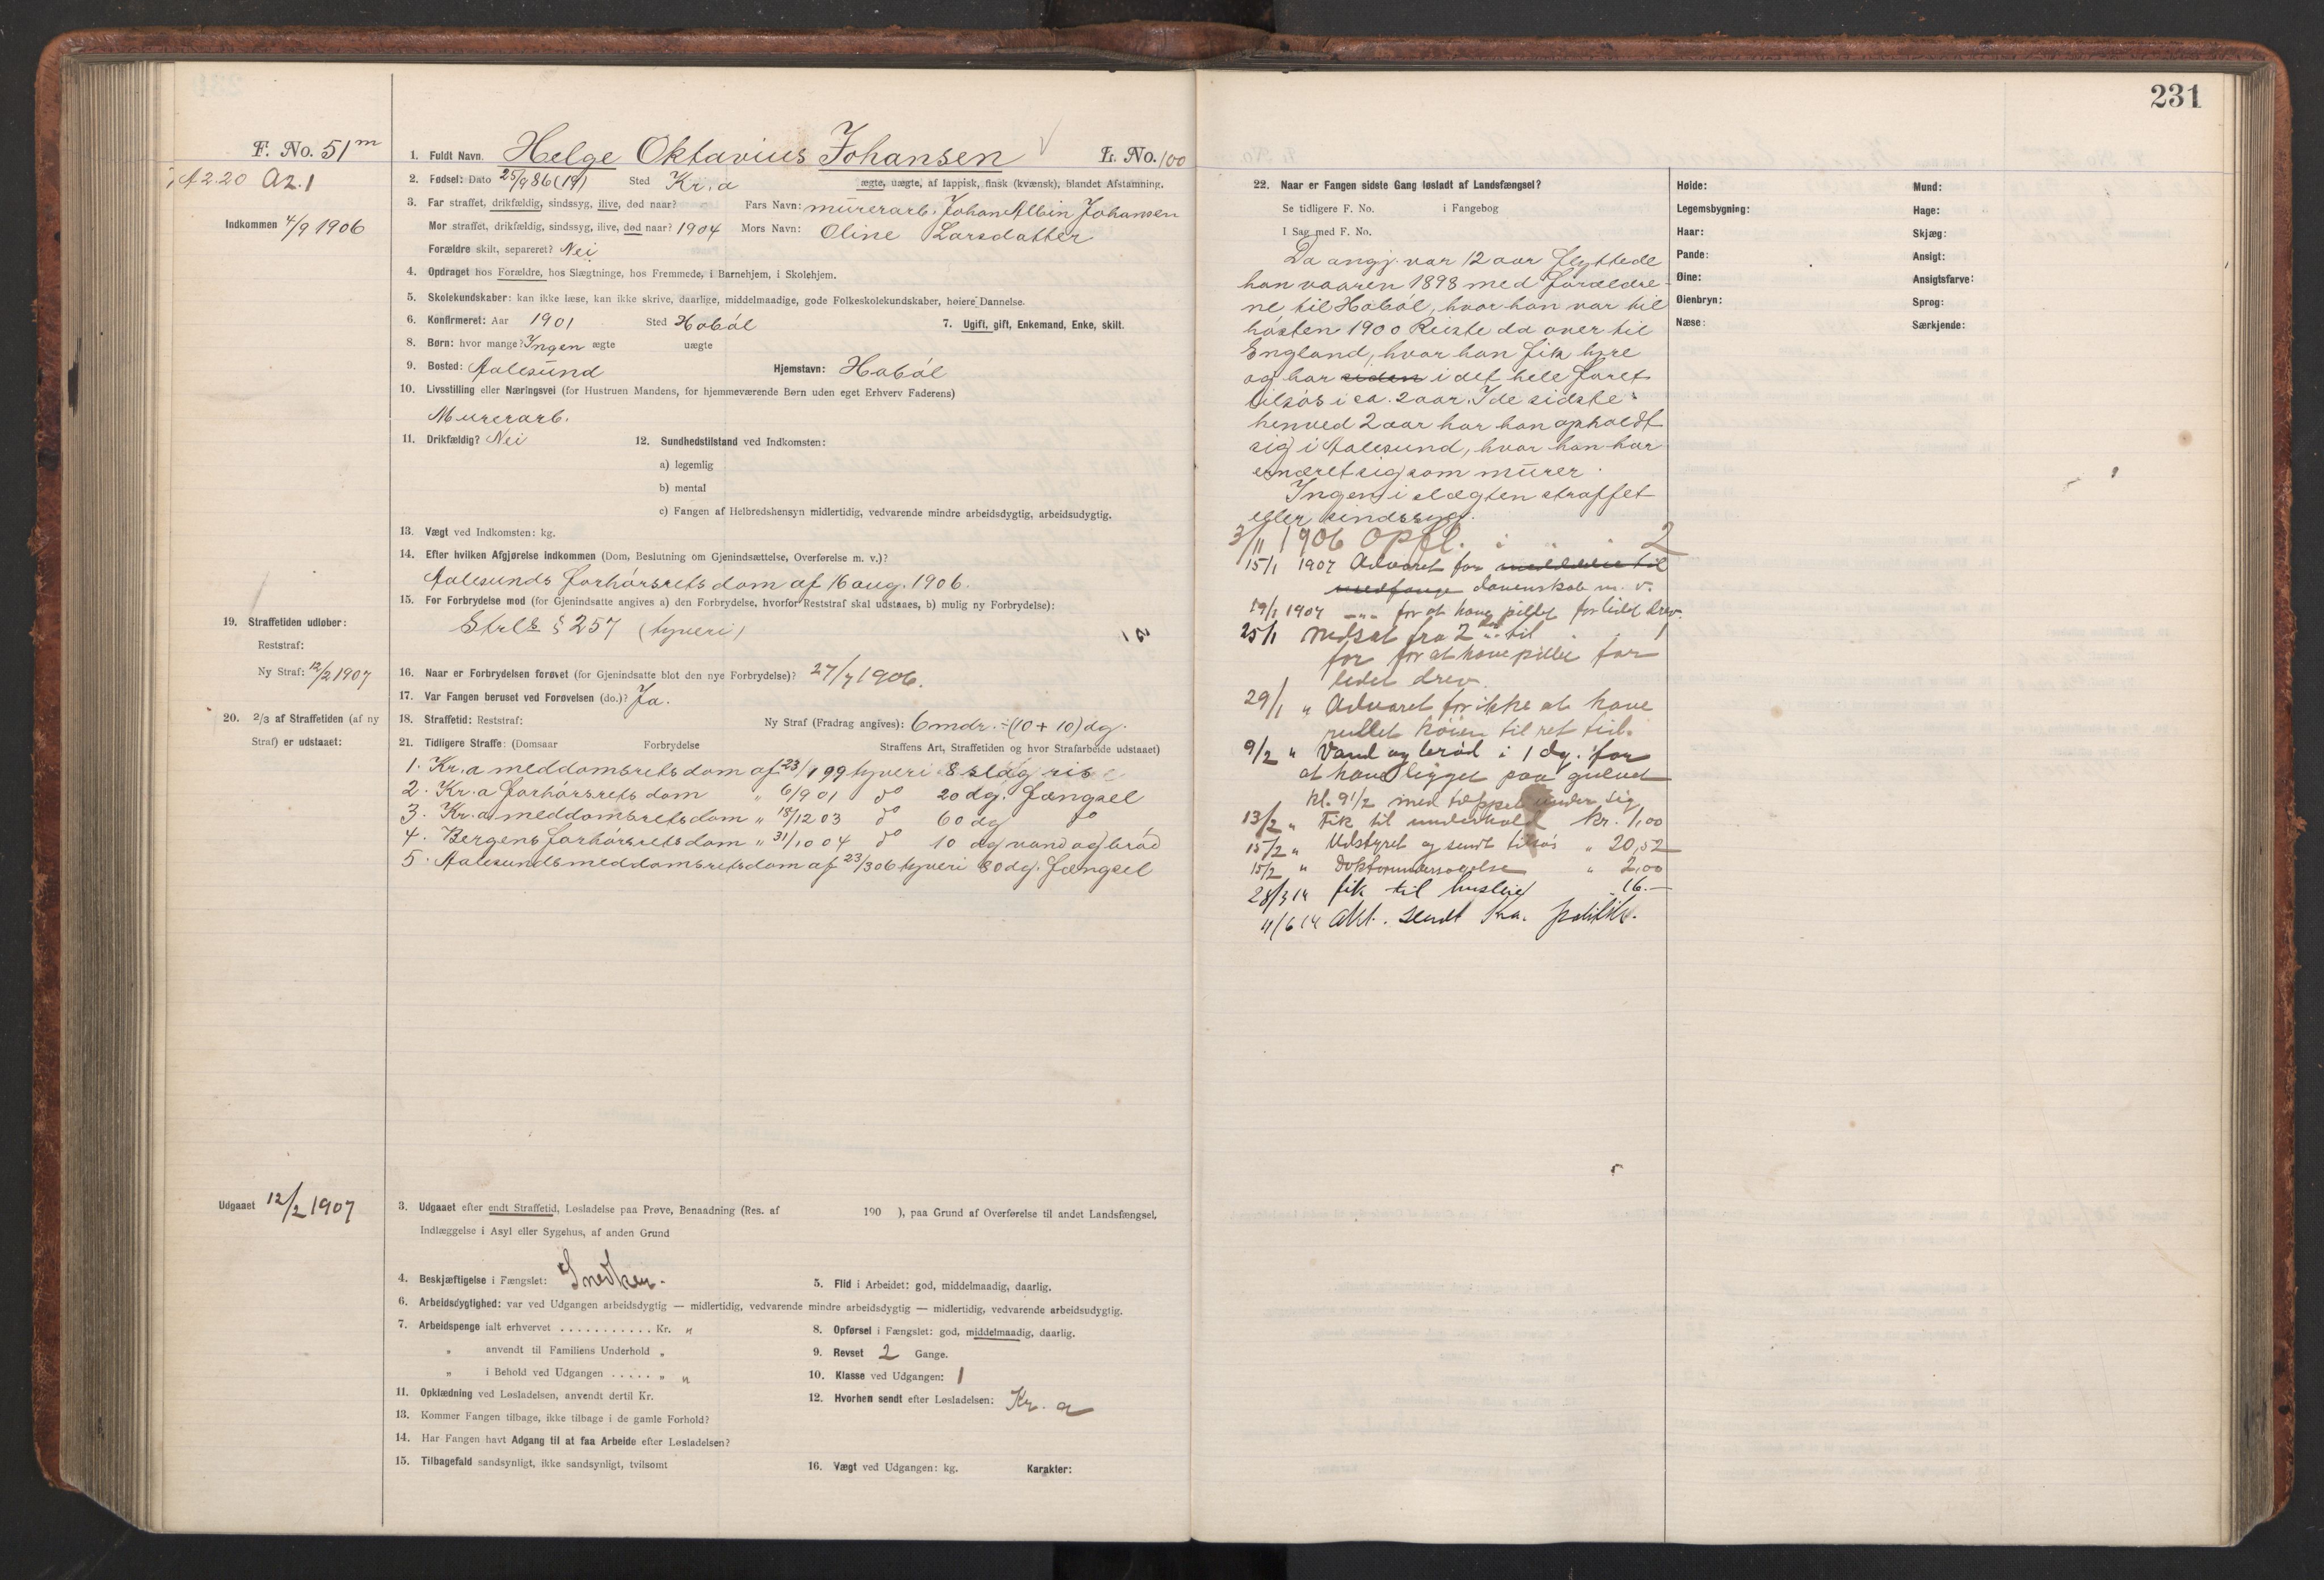 231
F. No. 51 m
1. Fuldt Navn. Helge Oktavius Johansen L. No. 100
A2.20 A2.1
2. Fødsel: Dato 25/9 86 (19) Sted Kr.a ægte, uægte, af lappisk, finsk (kvænsk), blandet Afstamning.
Indkommen 4/9 1906
3. Far straffet, drikfældig, sindssyg, ilive, død naar? Fars Navn: murerarb. Johan Albin Johansen
Mor straffet, drikfældig, sindssyg, ilive, død naar? 1904 Mors Navn: Oline Larsdatter
Forældre skilt, separeret? Nei
4. Opdraget hos Forældre, hos Slægtninge, hos Fremmede, i Barnehjem, i Skolehjem.
5. Skolekundskaber: kan ikke læse, kan ikke skrive, daarlige, middelmaadige, gode Folkeskolekundskaber, høiere Dannelse.
6. Konfirmeret: Aar 1901 Sted Hobøl 7. Ugift, gift, Enkemand, Enke, skilt.
8. Børn: hvor mange? Ingen ægte uægte
9. Bosted: Aalesund Hjemstavn: Hobøl
10. Livsstilling eller Næringsvei (for Hustruen Mandens, for hjemmeværende Børn uden eget Erhverv Faderens)
Murerarb.
11. Drikfældig? Nei 12. Sundhedstilstand ved Indkomsten:
a) legemlig
b) mental
c) Fangen af Helbredshensyn midlertidig, vedvarende mindre arbeidsdygtig, arbeidsudygtig.
13. Vægt ved Indkomsten: kg.
14. Efter hvilken Afgjørelse indkommen (Dom, Beslutning om Gjenindsættelse, Overførelse m. v.)?
Aalesunds forhørsrets dom af 16 aug. 1906.
15. For Forbrydelse mod (for Gjenindsatte angives a) den Forbrydelse, hvorfor Reststraf skal udstaaes, b) mulig ny Forbrydelse):
Strl. § 257 (tyveri)
19. Straffetiden udløber:
Reststraf:
Ny Straf: 12/2 1907
16. Naar er Forbrydelsen forøvet (for Gjenindsatte blot den nye Forbrydelse)? 27/7 1906.
17. Var Fangen beruset ved Forøvelsen (do.)? Ja.
20. 2/3 af Straffetiden (af ny
Straf) er udstaaet:
18. Straffetid: Reststraf: Ny Straf (Fradrag angives): 6 mdr. ÷ (10 + 10) dg.
21. Tidligere Straffe: (Domsaar Forbrydelse Straffens Art, Straffetiden og hvor Strafarbeide udstaaet)
1. Kr.a meddomsrets dom af 23/1 99 tyveri 8 slag ris
2. Kr.a forhørsrets dom " 6/9 01 do 20 dg. fængsel
3. Kr.a meddomsrets dom " 18/12 03 do 60 dg do
4. Bergens forhørsrets dom " 31/10 04 do 10 dg vand og brød
5. Aalesunds meddomsrets dom af 23/3 06 tyveri 80 dg. fængsel
Udgaaet 12/2 1907
3. Udgaaet efter endt Straffetid, Løsladelse paa Prøve, Benaadning (Res. af 190 ), paa Grund af Overførelse til andet Landsfængsel,
Indlæggelse i Asyl eller Sygehus, af anden Grund
4. Beskjæftigelse i Fængslet: Snedker. 5. Flid i Arbeidet: god, middelmaadig, daarlig.
6. Arbeidsdygtighed: var ved Udgangen arbeidsdygtig — midlertidig, vedvarende mindre arbeidsdygtig — midlertidig, vedvarende arbeidsudygtig.
7. Arbeidspenge ialt erhvervet ........... Kr. " 8. Opførsel i Fængslet: god, middelmaadig, daarlig.
" anvendt til Familiens Underhold " 9. Revset 2 Gange.
" i Behold ved Udgangen ..... " " 10. Klasse ved Udgangen: 1
11. Opklædning ved Løsladelsen, anvendt dertil Kr. 12. Hvorhen sendt efter Løsladelsen: Kr. a
13. Kommer Fangen tilbage, ikke tilbage i de gamle Forhold?
14. Har Fangen havt Adgang til at faa Arbeide efter Løsladelsen?
15. Tilbagefald sandsynligt, ikke sandsynligt, tvilsomt 16. Vægt ved Udgangen: kg. Karakter:
22. Naar er Fangen sidste Gang løsladt af Landsfængsel?
Se tidligere F. No. i Fangebog
I Sag med F. No.
Da angj. var 12 aar flyttede
han vaaren 1898 med forældre-
ne til Hobøl, hvor han var til
høsten 1900 Reiste da over til
England, hvor han fik hyre
og har siden i det hele faret
tilsøs i ca. 2 aar. I de sidste
henved 2 aar har han opholdt
sig i Aalesund, hvor han har
ernæret sig som murer.
Ingen i slægten straffet
eller sindssyg.
3/11 1906 Opfl. " " 2
15/1 1907 Advaret for meddelelse til
medfange dovenskab m. v.
19/1 1907 -"- for at have pillet for lidt drev.
25/1 Nedsat fra 2 til 1
for at have pillet for
lidet drev.
29/1 " Advaret for ikke at have
rullet køien til ret tid.
9/2 " Vand og brød i 1 dg. for
at have ligget paa gulvet
kl. 9 1/2 med tæppet under sig
13/2 " Fik til underhold kr. 1,00
15/2 " Udstyret og sendt tilsøs " 20,52
15/2 " Doktorundersøgelse " 2,00
28/3 14 fik til husleie 16.—
4/6 14 Akt. sendt Kra. politik.
Høide: Mund:
Legemsbygning: Hage:
Haar: Skjæg:
Pande: Ansigt:
Øine: Ansigtsfarve:
Øienbryn: Sprog:
Næse: Særkjende: